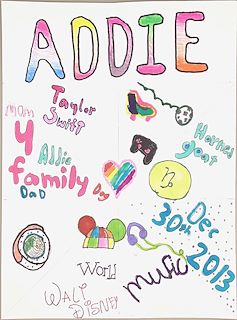 ADDIE
Taylor
Swift
Mom
4
Allie
family
DaD
Horned
goat
Dec
30th
2013
World
music
WALT
DISNEY